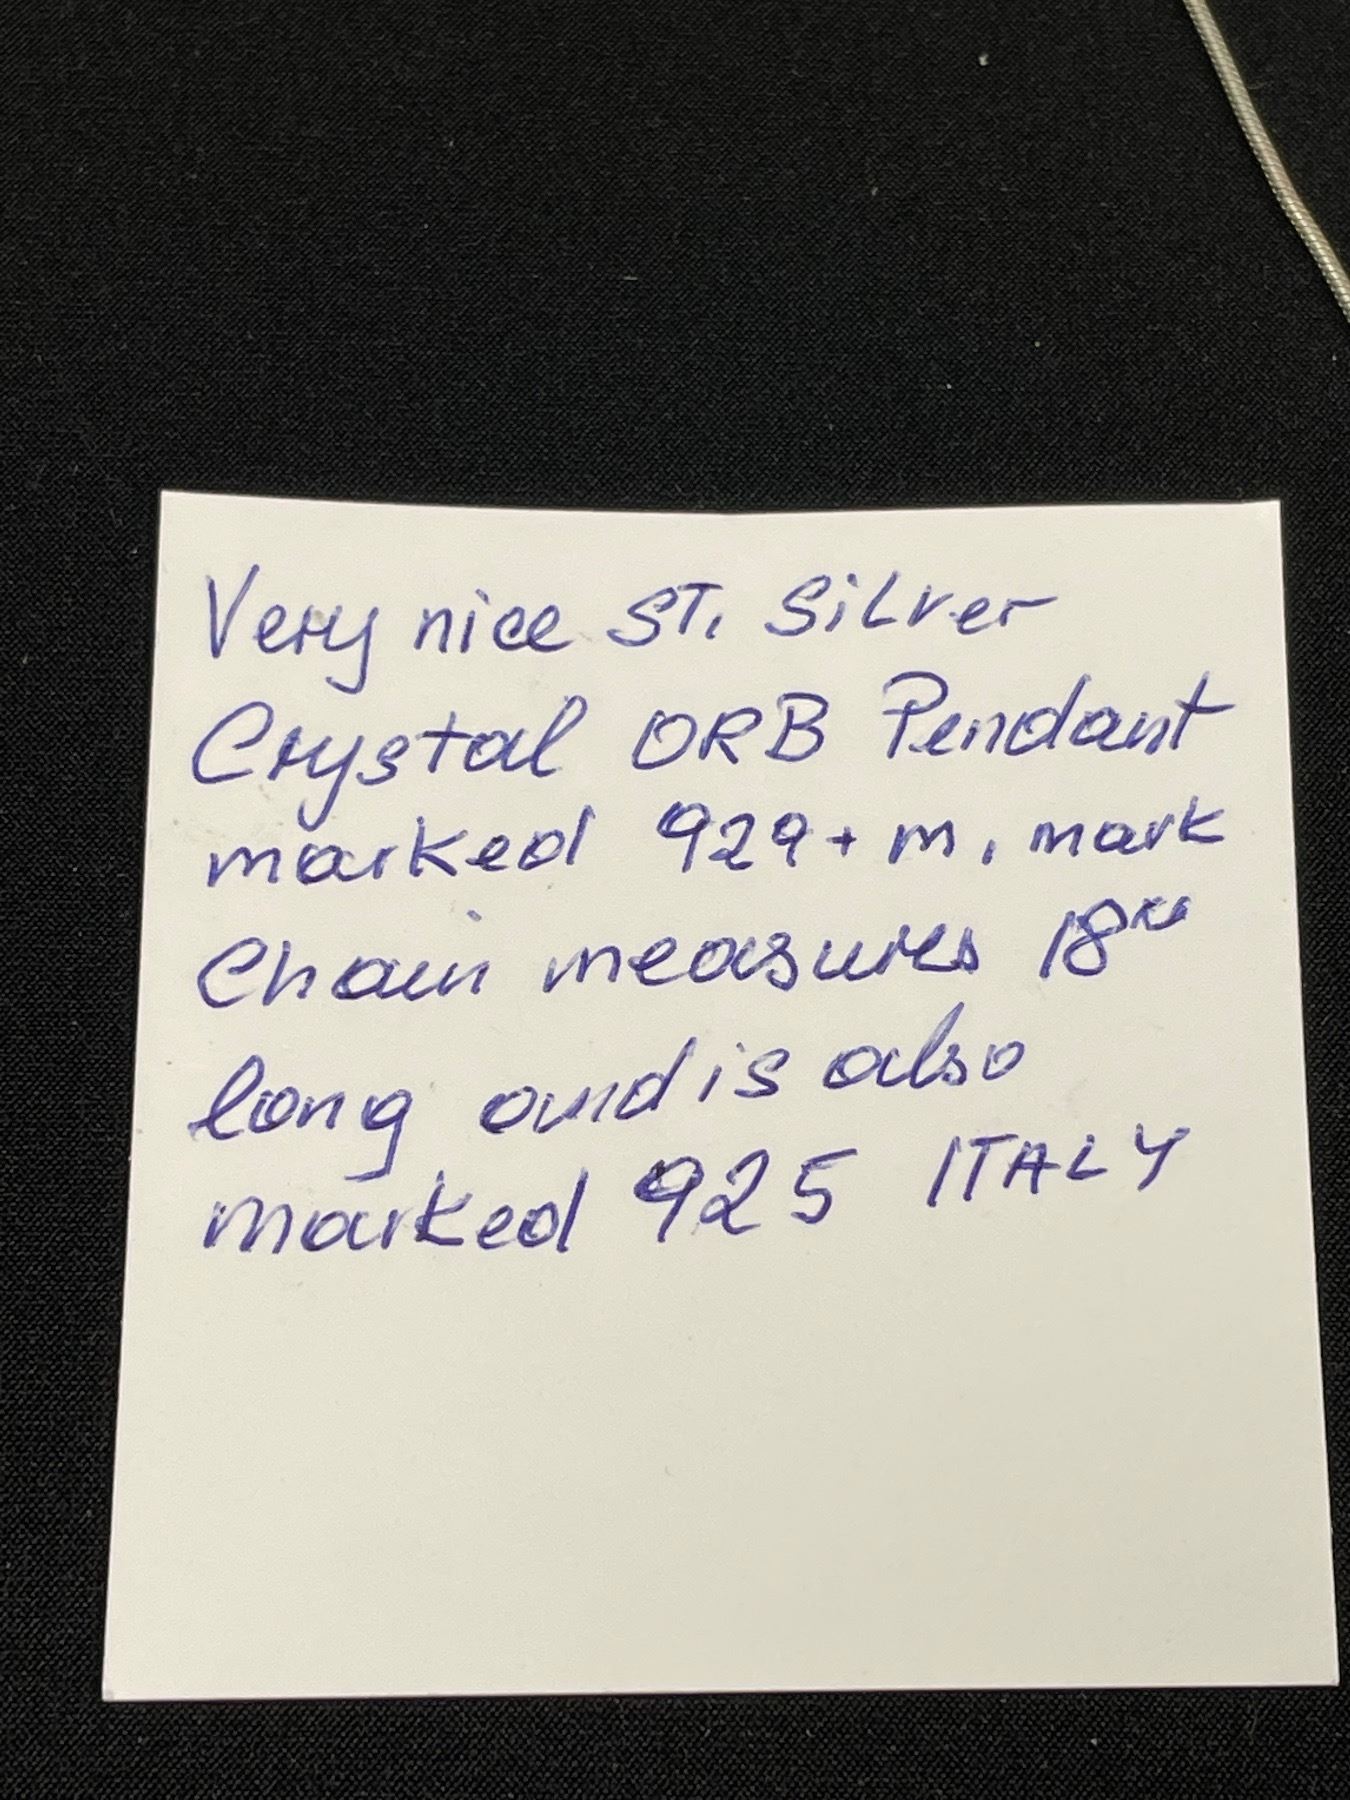 Very nice ST. Silver
Crystal ORB Pendant
marked 929 + m. mark
Chain measures 18"
long and is also
marked 925 ITALY